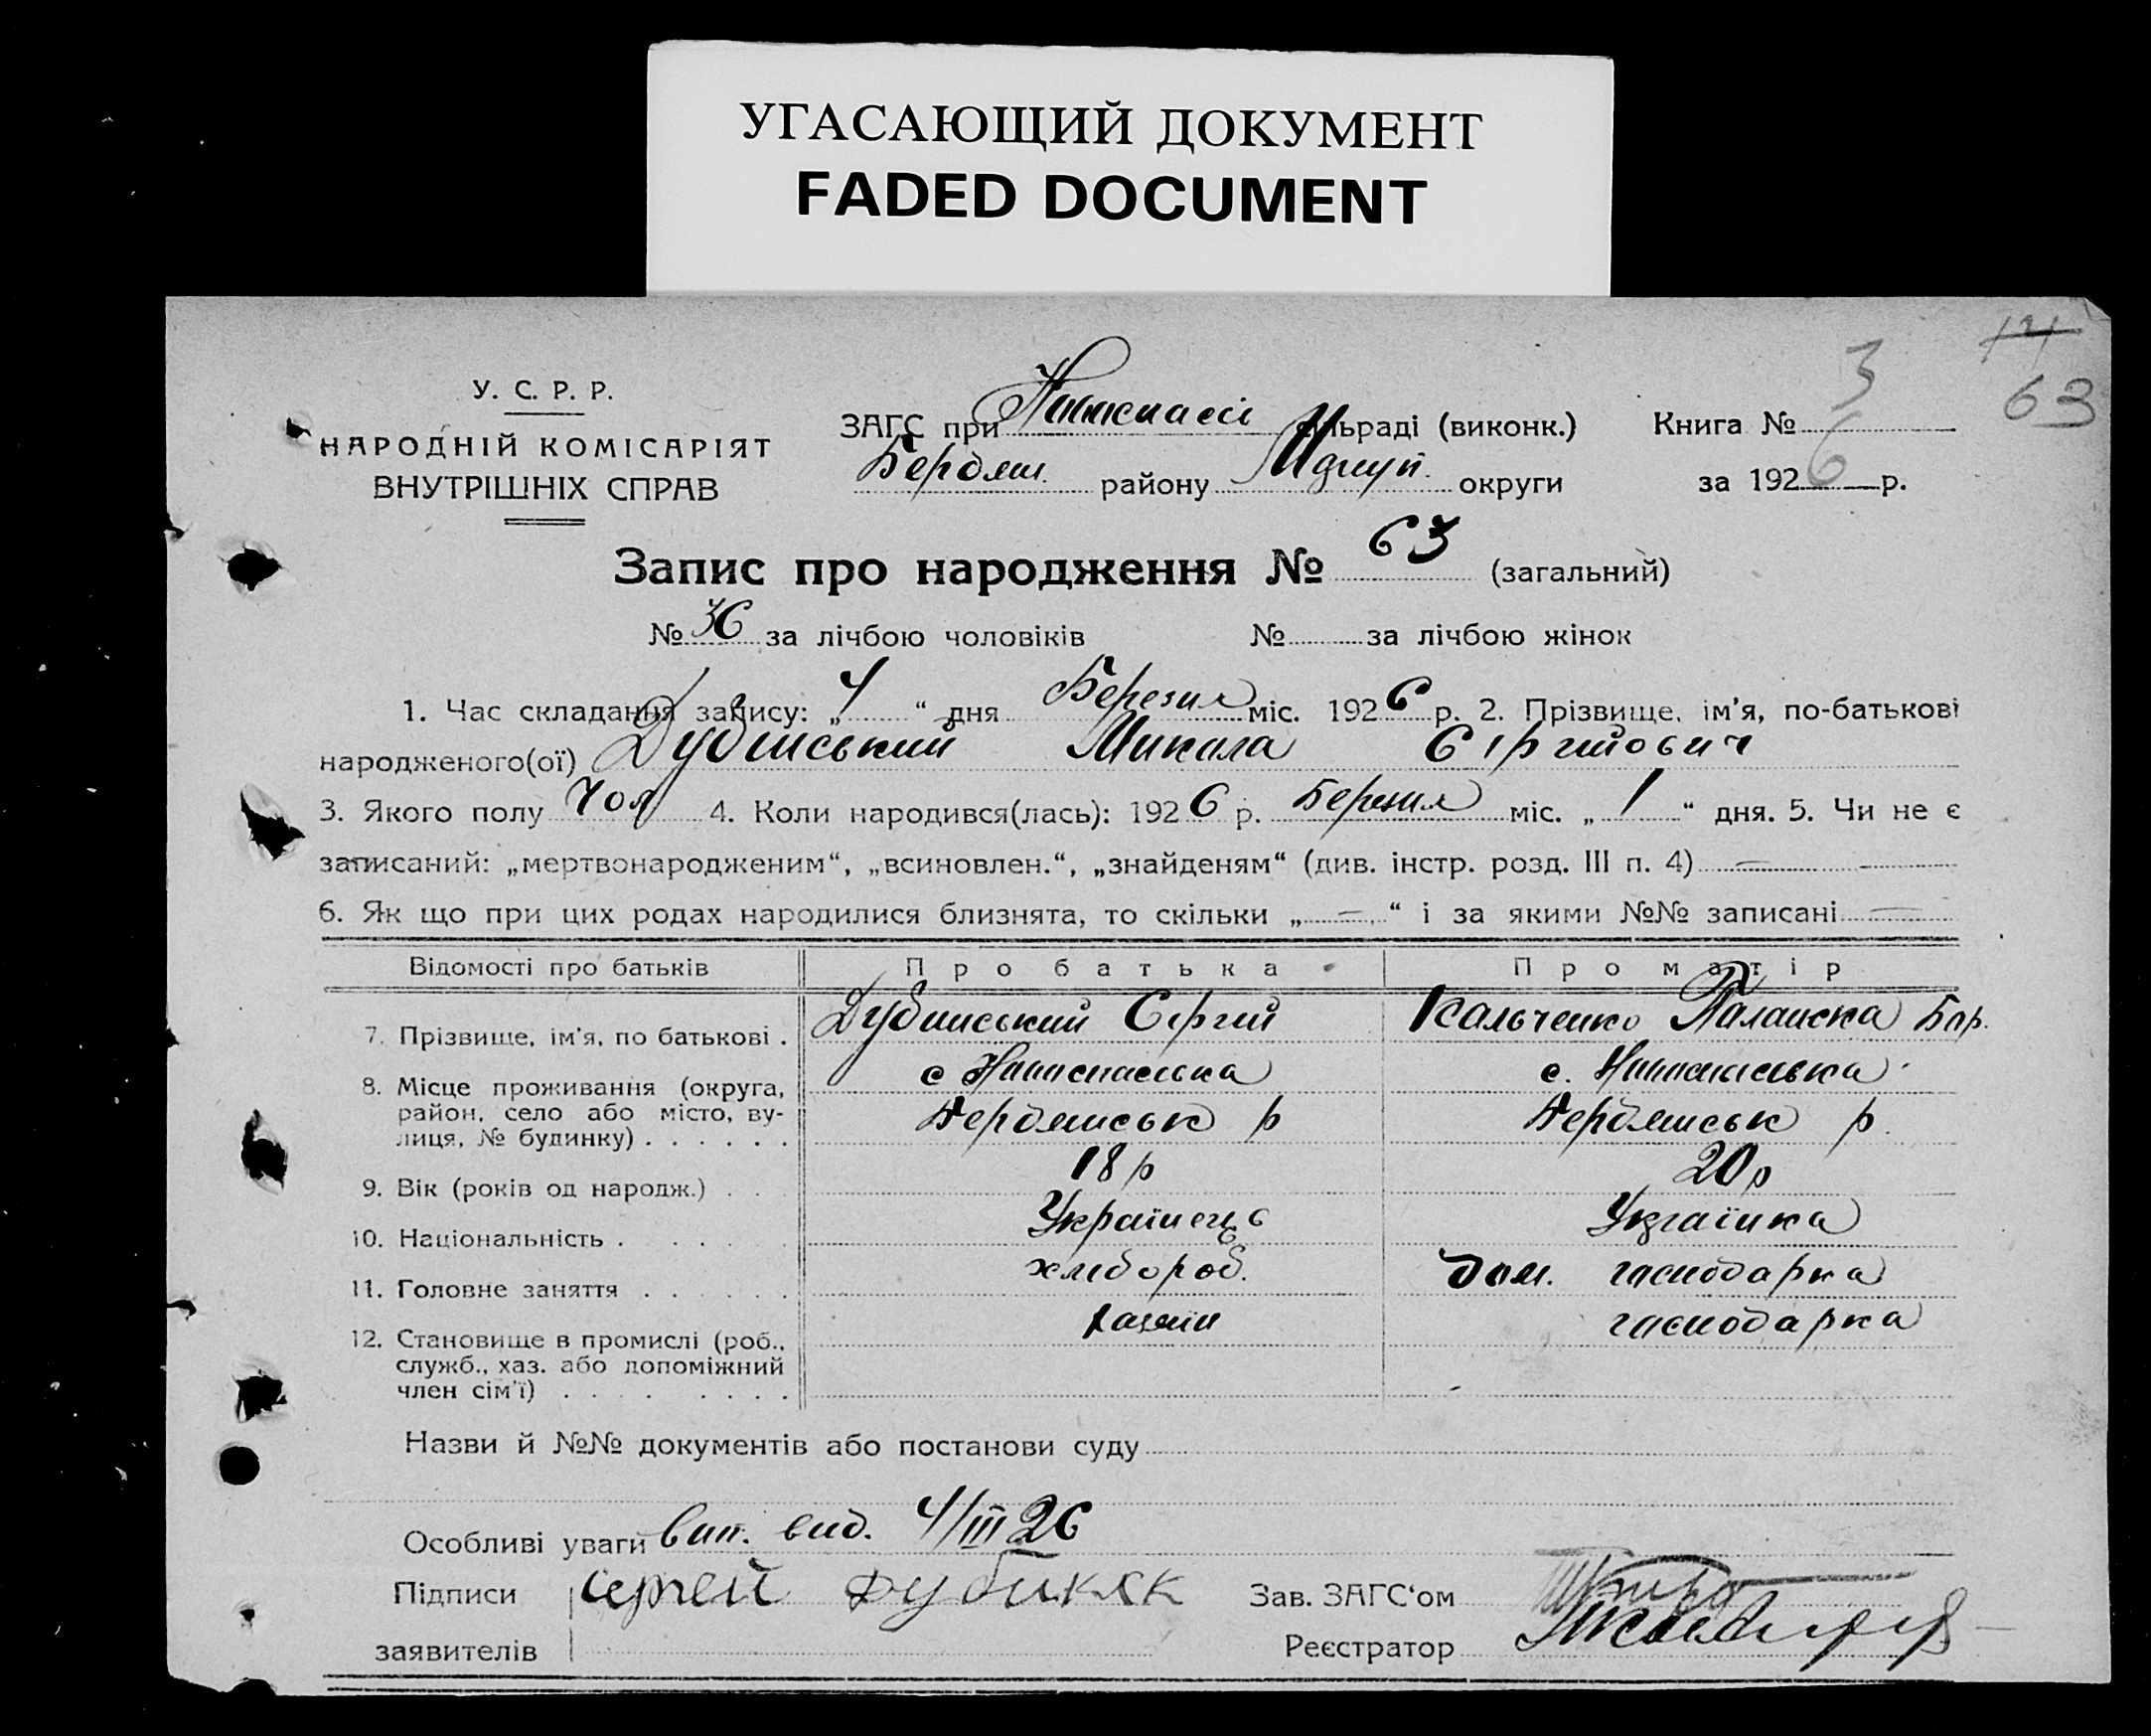 УГАСАЮЩИЙ ДОКУМЕНТ
FADED DOCUMENT
14
3
63
У. С. Р. Р.
НАРОДНІЙ КОМІСАРІЯТ
ВНУТРІШНІХ СПРАВ
ЗАГС при льраді (виконк.) Книга №
Бердян. району округи за 1926 р.
Запис про народження № 63 (загальний)
№ 36 за лічбою чоловіків № за лічбою жінок
1. Час складання запису: „ 4 “ дня Березня міс. 1926 р. 2. Прізвище, ім’я, по-батькові
народженого(ої) Дубинський Микола Сергійович
3. Якого полу чол 4. Коли народився(лась): 1926 р. Березня міс. „ 1 “ дня. 5. Чи не є
записаний: „мертвонародженим“, „всиновлен.“, „знайденям“ (див. інстр. розд. III п. 4) —
6. Як що при цих родах народилися близнята, то скільки „ — “ і за якими №№ записані —
Відомості про батьків Про батька Про матір
7. Прізвище, ім’я, по батькові . Дубинський Сергій Кальченко Палажка
8. Місце проживання (округа, с с.
район, село або місто, ву- Бердянськ р Бердянськ р.
лиця, № будинку) . . . . . .
9. Вік (років од народж.) . . 18 р 20 р
10. Національність . . . . . Українець Українка
11. Головне заняття . . . . . . хлібороб. дом. господарка
12. Становище в промислі (роб., господарка
служб., хаз. або допоміжний
член сім’ї) . . . . . . . .
Назви й №№ документів або постанови суду
Особливі уваги вип. вид. 4/III 26
Підписи Сергей Зав. ЗАГС‘ом
заявителів Реєстратор